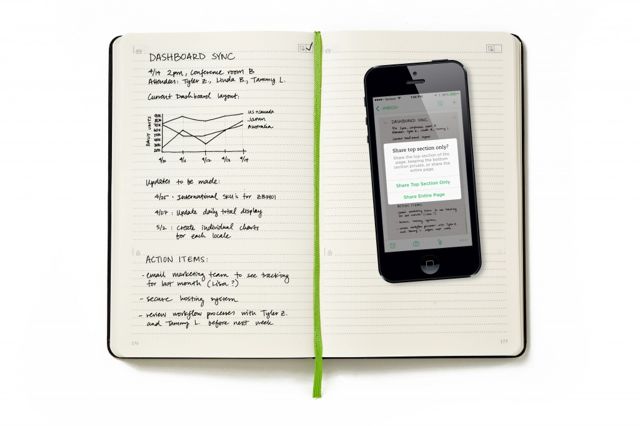 DASHBOARD SYNC
4/19 2pm, Conference room B
Attendees: Tyler Z., Linda B., Tammy L.
Current Dashboard layout:
DAILY UNITS
US/Canada
Japan
Australia
Updates to be made:
4/25 - International SKU's for ZB7401
4/27 - Update daily total display
5/2 - Create individual charts
for each locale
ACTION ITEMS:
- email marketing team to see tracking
for last month (Lisa?)
- secure hosting system
- review workflow processes with Tyler Z.
and Tammy L. before next week
DASHBOARD SYNC
Share top section only?
Share the top section of the
page, keeping the bottom
section private, or share the
entire page.
Share Top Section Only
Share Entire Page
ACTION ITEMS: